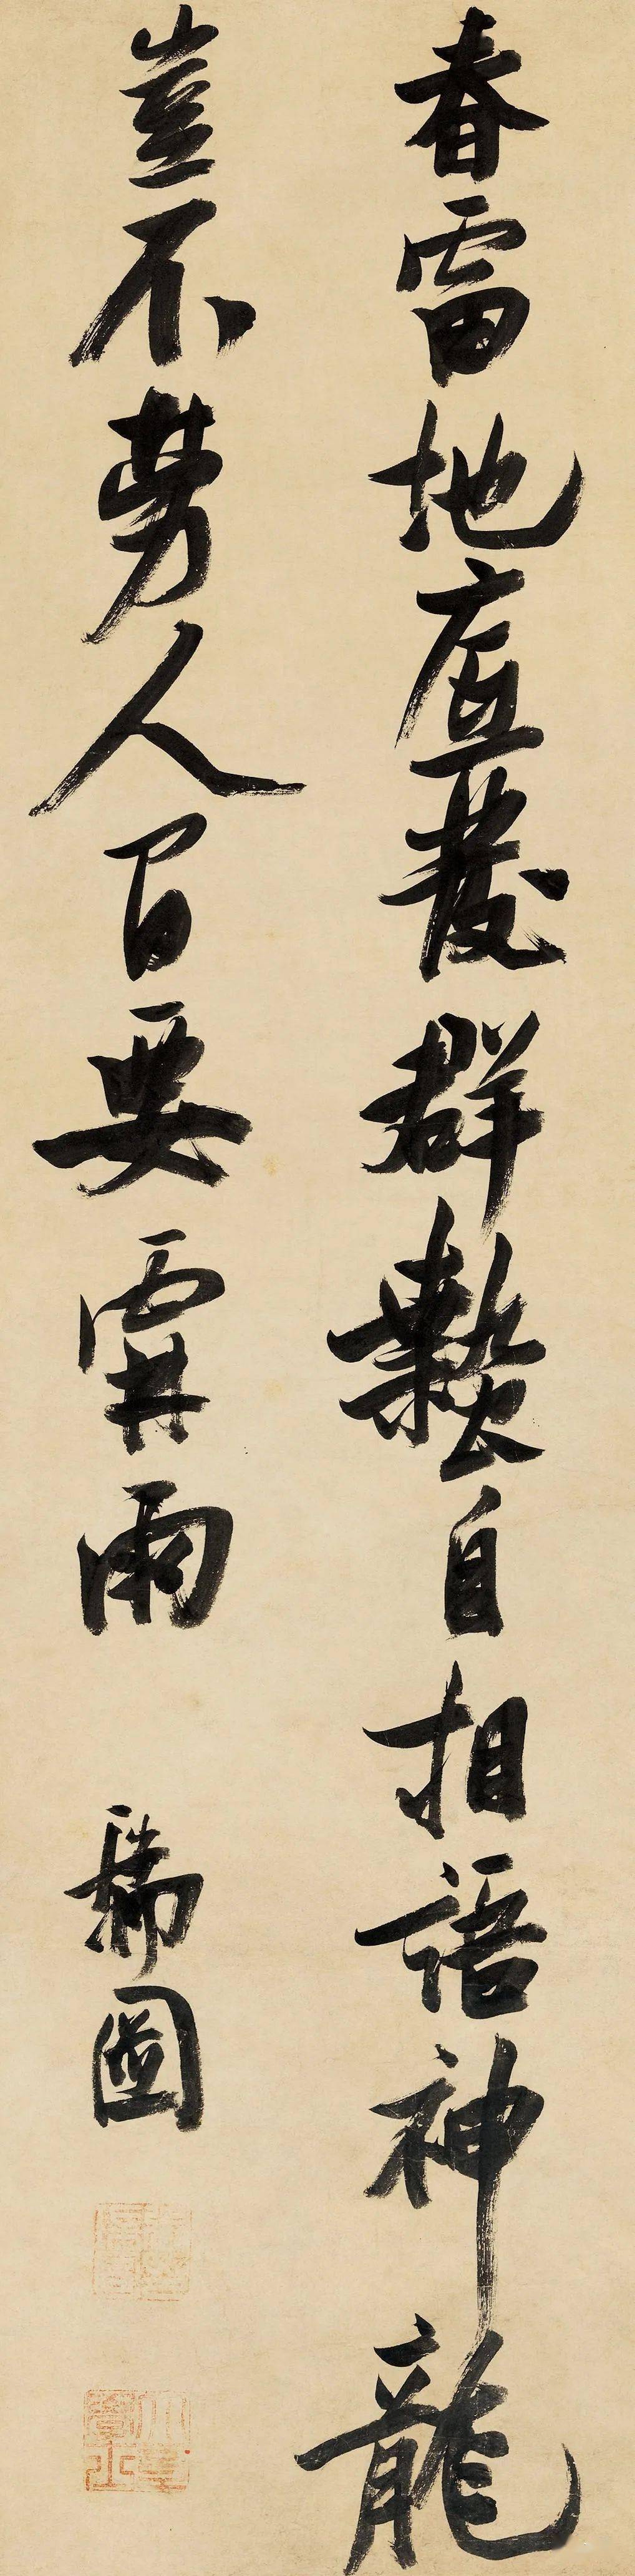 春雷地底發群蟄自相語神龍
豈不勞人間要霖雨
瑞圖